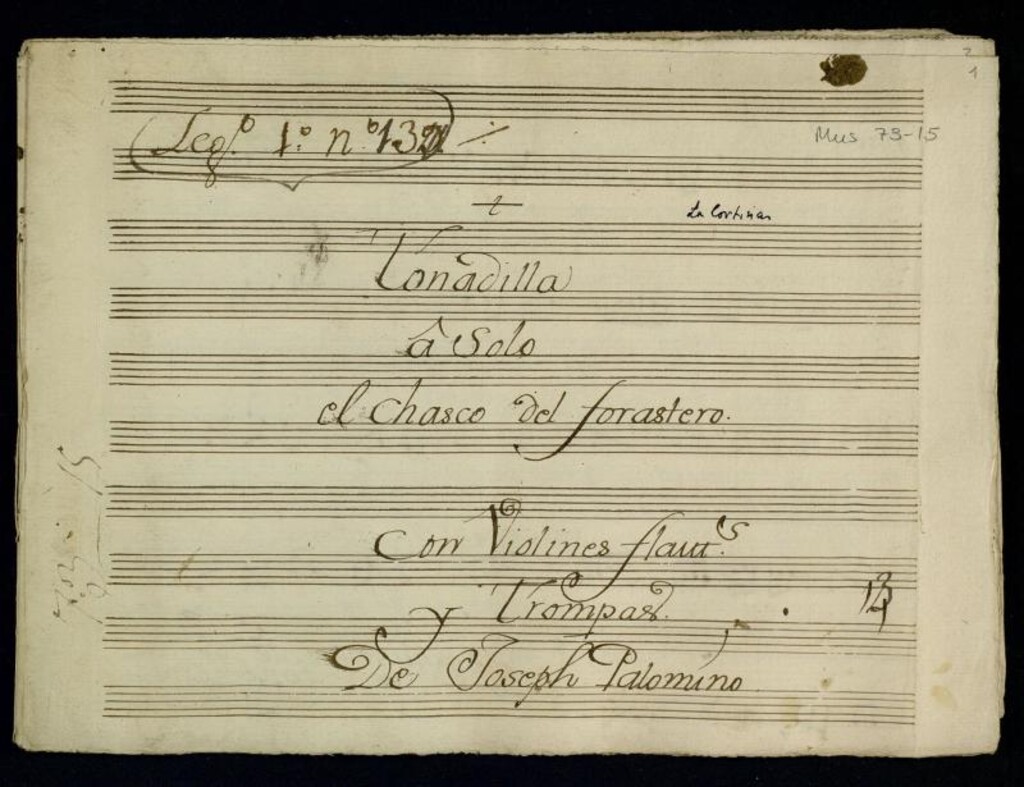 2
1
Leg.º 1.º n.º 132
Mus 73-15
La Cortinas
Tonadilla
â Solo
el Chasco del forastero.
Con Violines flaut.s
y Trompas.
De Joseph Palomino